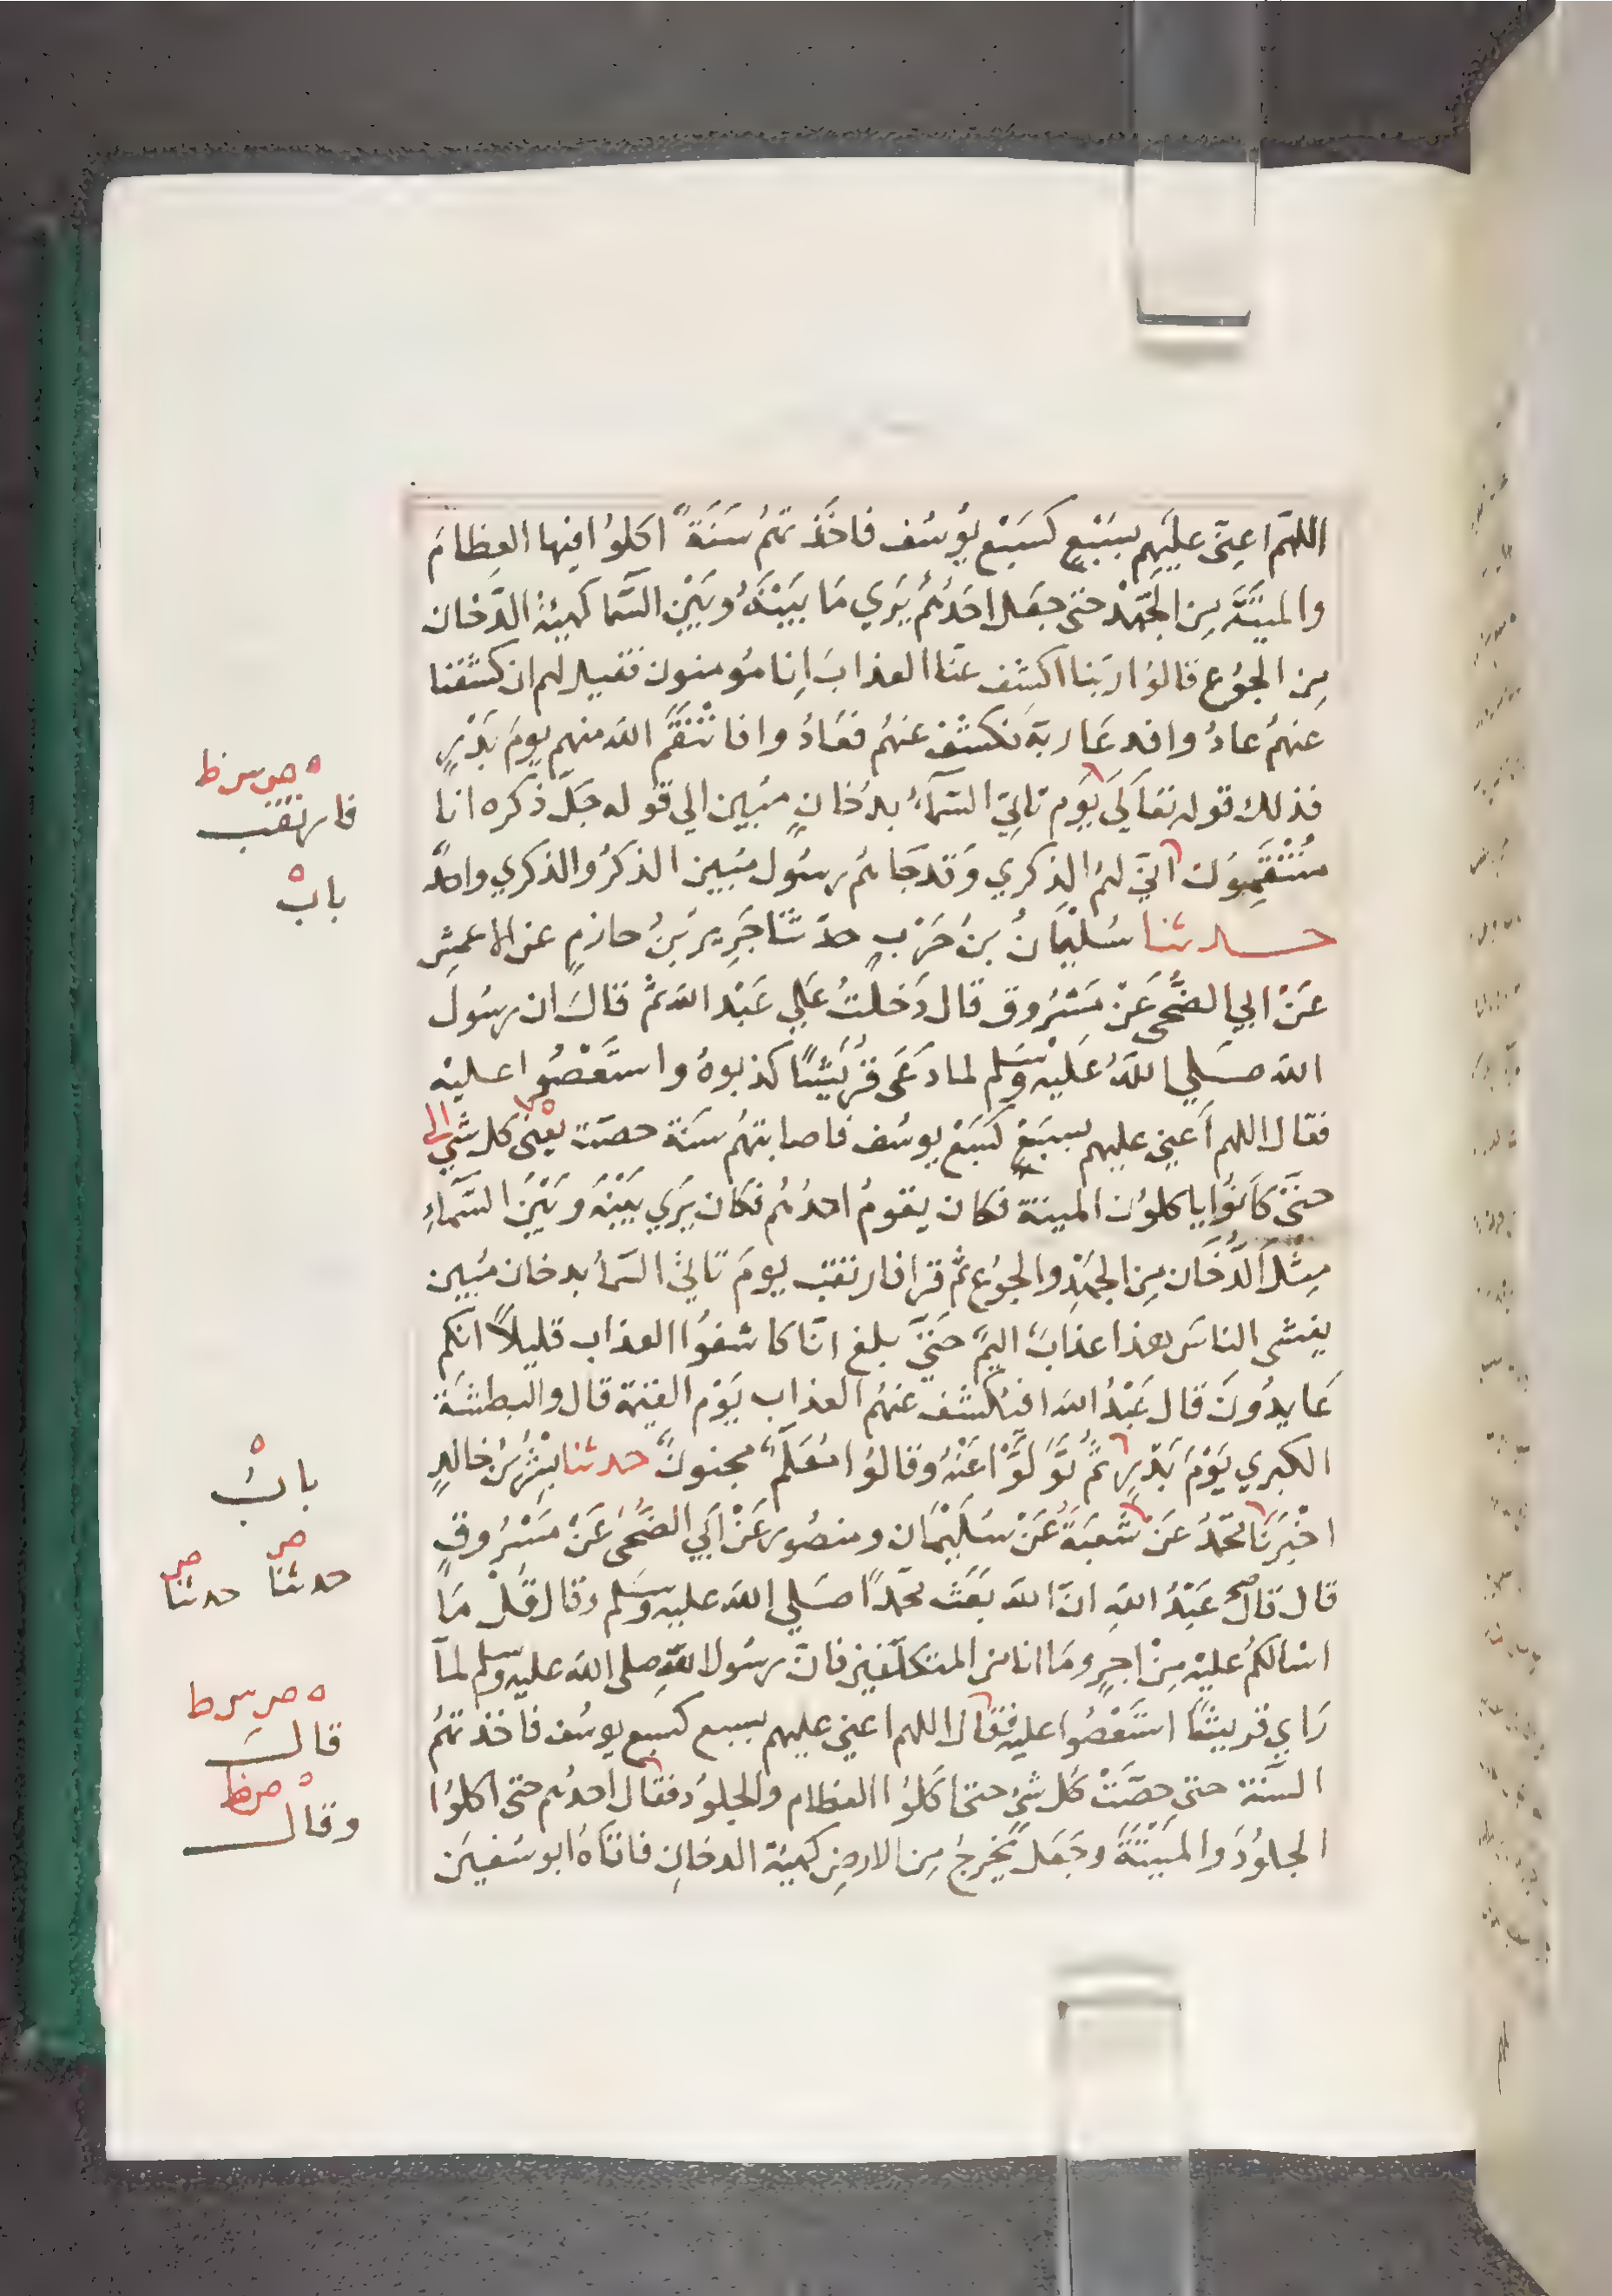 اللهم اعنى عليهم بسبع كسبع يوسف فاخذتهم سنة اكلوا فيها العظام
والميتة من الجهد حتى جعل احدهم يرى ما بينه وبين السما كهيئة الدخان
من الجوع قالوا ربنا اكشف عنا العذاب انا مؤمنون فقيل له ان كشفنا
عنهم عادوا فدعا ربه فكشف عنهم فعادوا فانتقم الله منهم يوم بدر
فذلك قوله تعالى يوم تاتي السماء بدخان مبين الي قوله جل ذكره انا
منتقمون اني لهم الذكري وقد جاهم رسول مبين الذكر والذكري واحد
حدثنا سليمان بن حرب حدثنا جرير بن حازم عن الاعمش
عن ابي الضحى عن مسروق قال دخلت علي عبد الله ثم قال ان رسول
الله صلي الله عليه وسلم لما دعى قريشا كذبوه واستعصوا عليه
فقال اللهم أعني عليهم بسبع كسبع يوسف فاصابتهم سنة حصت يعني كل شي
حتى كانوا ياكلون الميتة فكان يقوم احدهم فكان يري بينه وبين السماء
مثل الدخان من الجهد والجوع ثم قرا فارتقب يوم تاتي السما بدخان مبين
يغشى الناس هذا عذاب اليم حتي بلغ انا كاشفوا العذاب قليلا انكم
عايدون قال عبد الله افيكشف عنهم العذاب يوم القيمة قال والبطشة
الكبري يوم بدر ثم تولوا عنه وقالوا معلم مجنون حدثنا بشر بن خالد
اخبرنا محمد عن شعبة عن سليمان ومنصور عن ابي الضحى عن مسروق
قال قال عبد الله ان الله بعث محمدا صلي الله عليه وسلم وقال قل ما
اسالكم عليه من اجر وما انا من المتكلفين فان رسول الله صلى الله عليه وسلم لما
راي قريشا استعصوا عليه فقال اللهم اعني عليهم بسبع كسبع يوسف فاخذتهم
السنة حتي حصت كل شي حتى اكلوا العظام والجلود فقال احدهم حتى اكلوا
الجلود والميتة وجعل يخرج من الارض كهيئة الدخان فاتاه ابو سفين
ه ص س ط
فارتقب
باب
باب
حدثنا حدثنا
ه ص س ط
قال
وقال